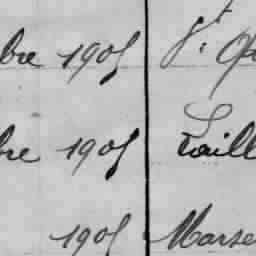 bre 1905 St. 
bre 1905 Taill
1905 Marse